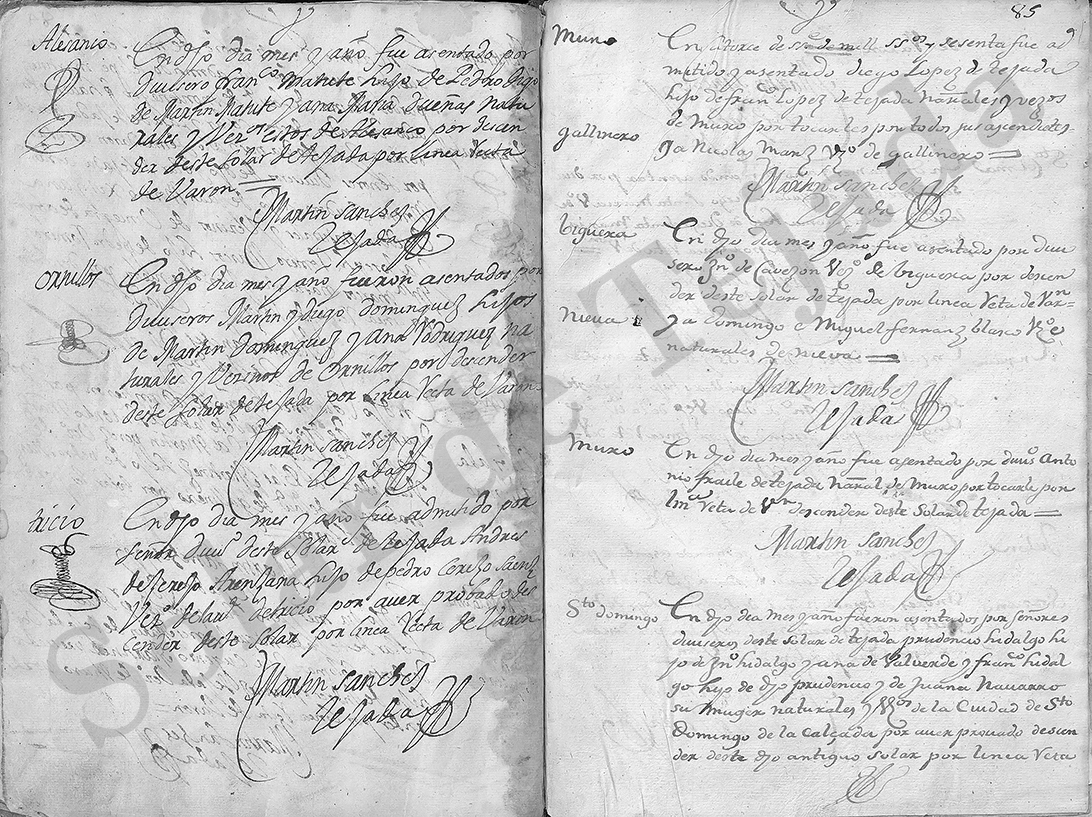 Alesanco
En dho dia mes y año fue asentado por
diuisero franco Matute hijo de Pedro
de Martin Matute y ana Maria dueñas natu
rales y Vezos estos de Alesanco por decen
der deste solar de tejada por linea recta
de Varon
Martin Sanchez
Tejada
Ornillos
En dho dia mes y año fueron asentados por
diuiseros Martin y diego dominguez hijos
de Martin Dominguez y Ana Rodriguez na
turales y Vecinos de Ornillos por decender
deste solar de tejada por linea recta de Varon
Martin Sanchez
Tejada
tricio
En dho dia mes y año fue admitido por
señor diuiso deste solar de tejada Andres
de Arenzana hijo de pedro Cerezo Saenz
Vezo de la va de tricio por auer probado des
cender deste solar por linea recta de Varon
Martin Sanchez
Tejada
85
Muro
En catorce de de mill ssos y sesenta fue ad
mitido y asentado diego Lopez de tejada
hijo de franco Lopez de tejada naturales y vezos
de Muro por tocarles por todos sus ascendietes
gallinero
ya Nicolas Marnz Vzo de gallinero
Martin Sanchez
Tejada
biguera
En dho dia mes y año fue asentado por diui
sero Jno de Cavezon Vezo de biguera por decen
der deste solar de tejada por linea Reta de Varon
Nieva
ya domingo e Miguel fernanz blasco Vzos e
naturales de nieva
Martin Sanchez
Tejada
Muro
En dho dia mes y año fue asentado por diuiso Anto
nio fraile de tejada natural de Muro por tocarle por
linea Reta de Varon descender deste Solar de tejada
Martin Sanchez
Tejada
Sto domingo
En dho dia mes y año fueron asentados por señores
diuiseros deste solar de tejada prudencio hidalgo hi
jo de Jno hidalgo y ana de Valverde y franco hidal
go hijo de dho prudencio y de Juana Navarro
su muger naturales y Vezos de la Ciudad de Sto
Domingo de la Calçada por auer prouado decen
der deste dho antiguo solar por linea Reta
Solar de Tejada